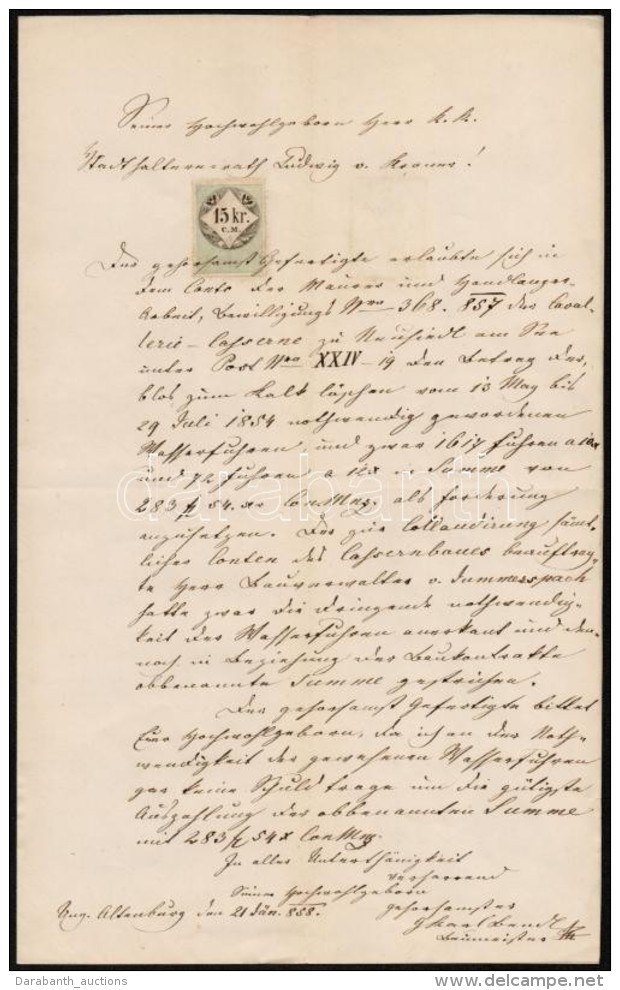 Seiner Hochwohlgeborn Herr k. k.
Stadthaltereirath Ludwig v. Kroner!
15 kr.
C.M.
Der gehorsamst Gefertigte erlaubte sich in
dem Conto der Maurer und Handlanger-
Arbeit, Bewilligungs Nro 368. 857 der Caval-
lerie-Caserne zu Neusiedl am See
unter Post Nro XXIV-19 den Betrag der,
blos zum Kalk löschen vom 13 May bis
29 Juli 1854 nothwendig gewordenen
Wasserfuhren und zwar 1617 Fuhren a 10x
und 72 Fuhren a 12x in Summe von
283 f 54 xr Con.Mnz. als Forderung
anzusetzen. Der zur Collaudirung sämt-
licher Conten des Casernbaues beauftrag-
te Herr Bauverwalter v. Dummerspach
hatte zwar die dringende nothwendig-
keit der Wasserfuhren anerkant und den-
noch in Beziehung der Baukontrakte
obbenannte Summe gestrichen.
Der gehorsamst Gefertigte bittet
Euer Hochwohlgeborn, da ich an der Noth-
wendigkeit der gewesenen Wasserfuhren
gar keine Schuld trage um die gütigste
Auszahlung der obbenannten Summe
mit 283 f 54x Con Mnz.
In aller Unterthänigkeit
verharrend
Seiner Hochwohlgeborn
Ung. Altenburg den 21 Jän. 858.
gehorsamster
Karl Bendl
Baumeister
darabanth
Darabanth_auctions